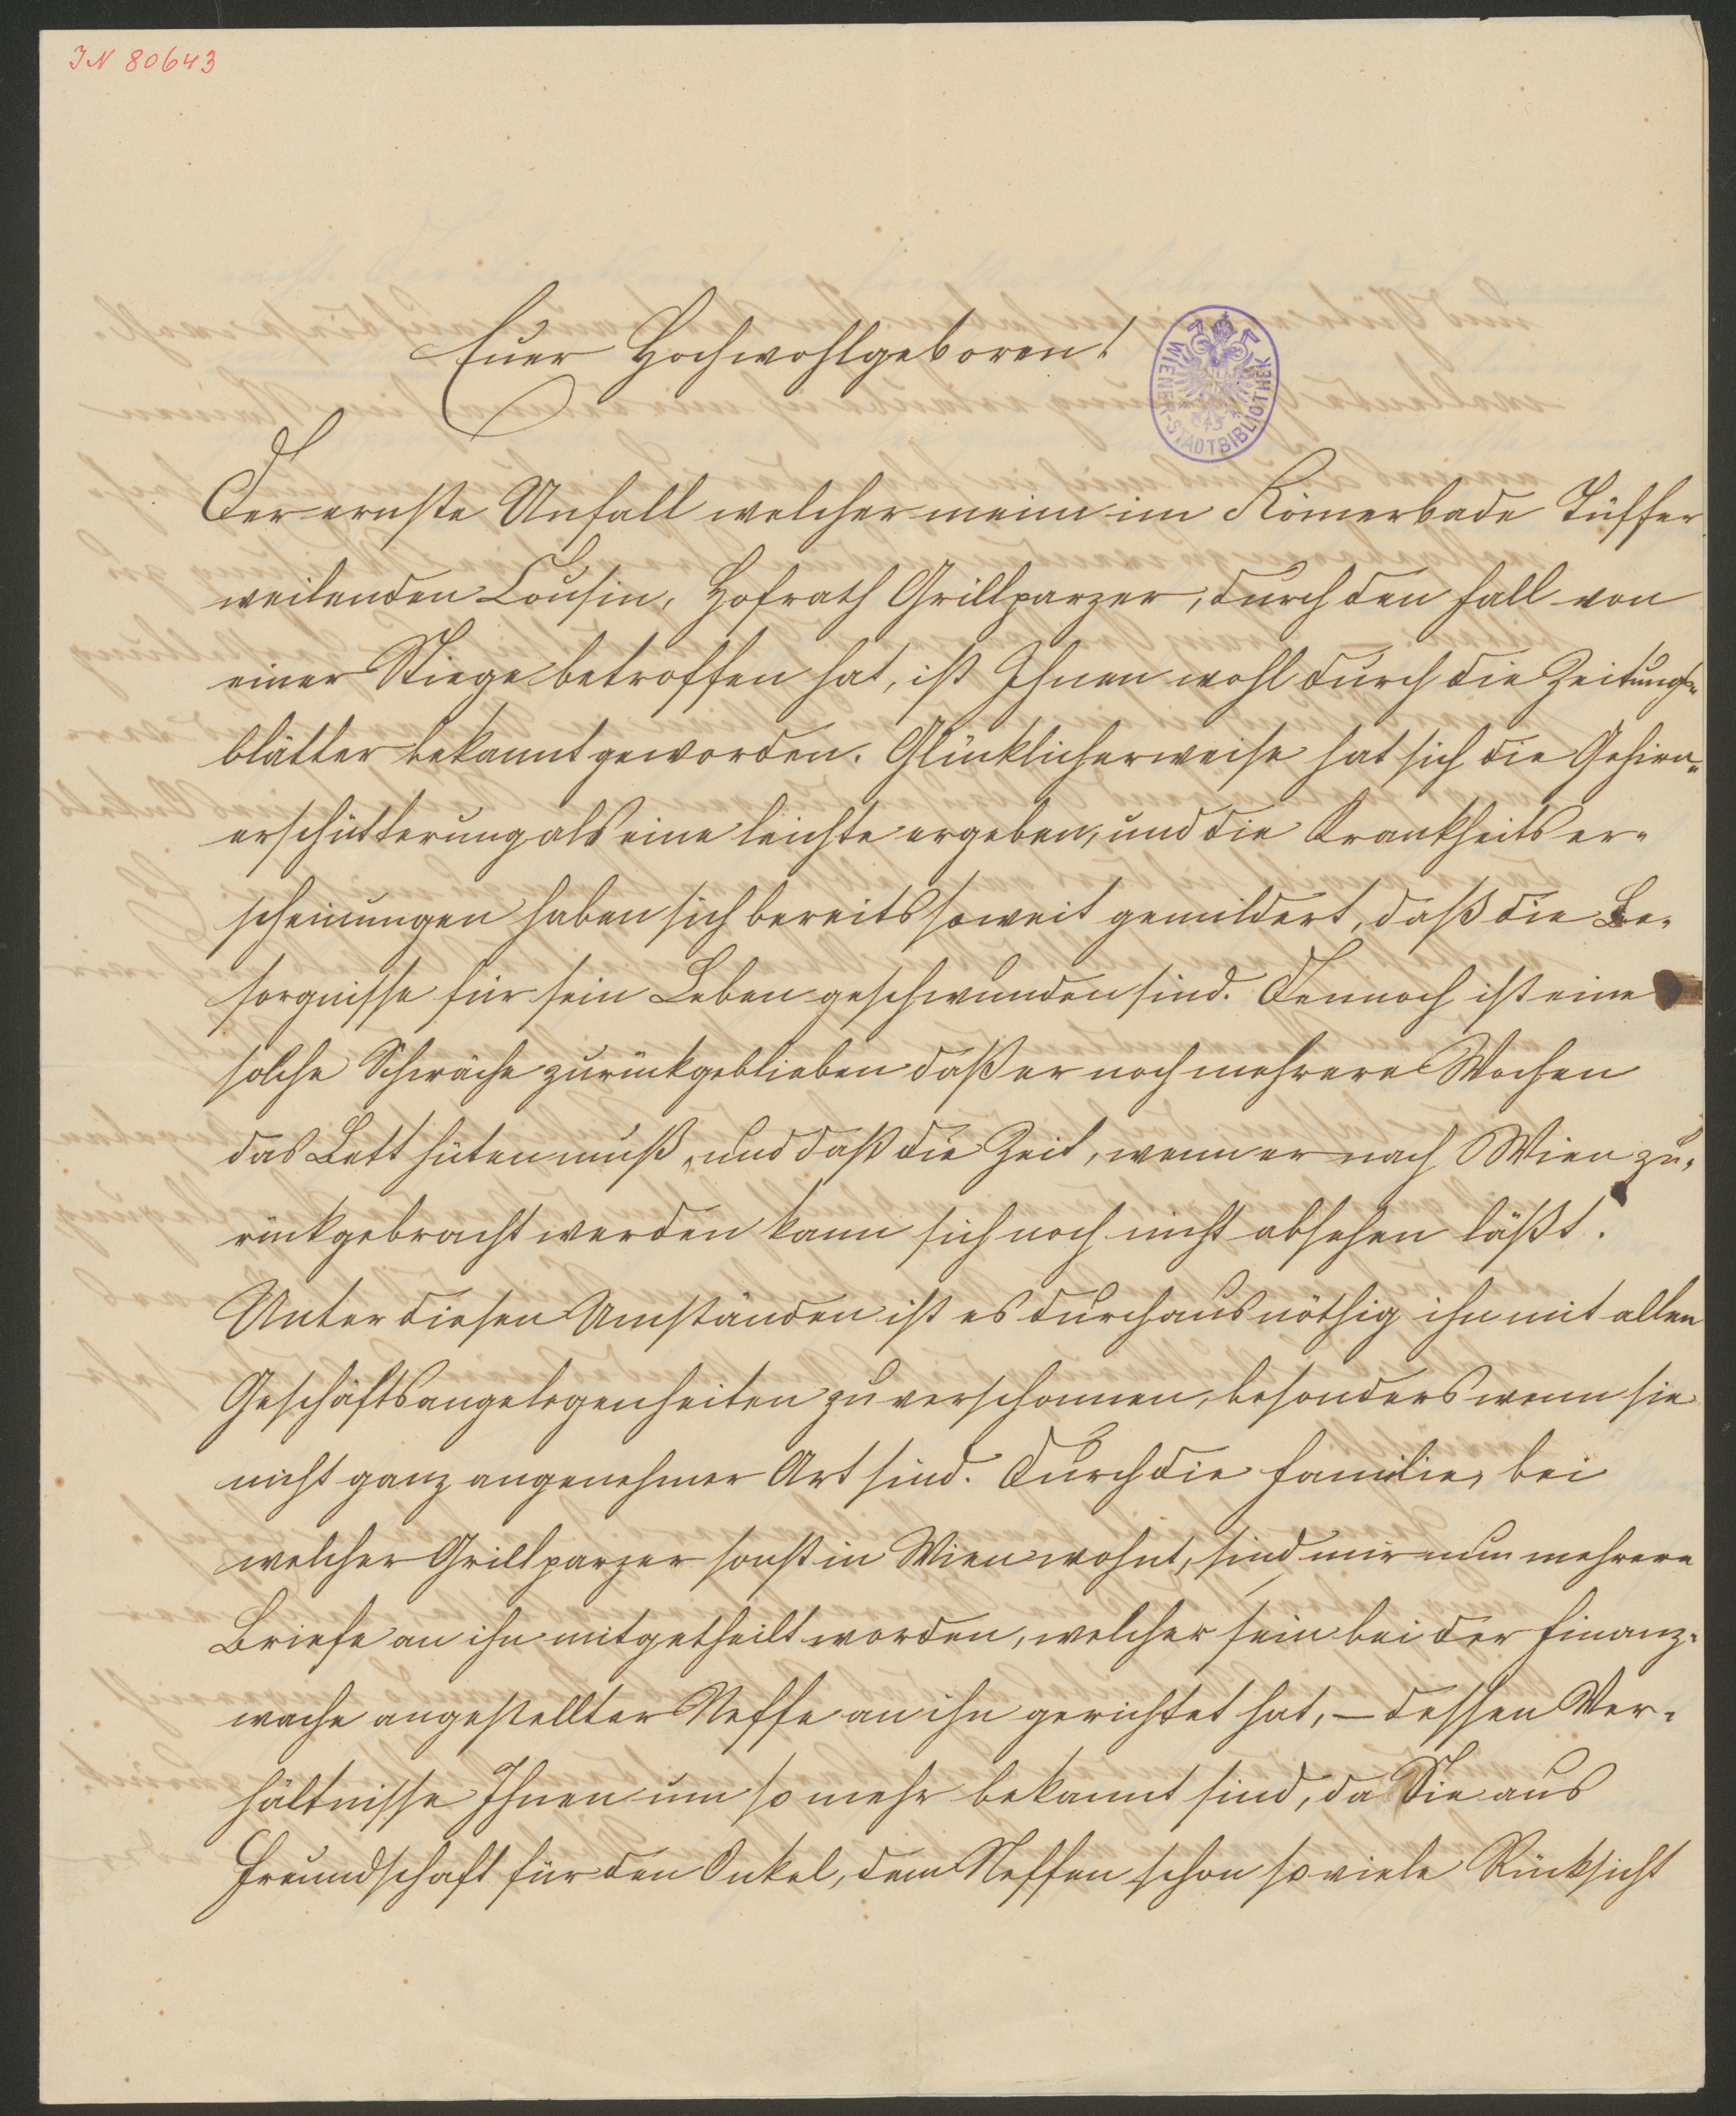 IN 80643
Euer Hochwohlgeboren!
WIENER-STADTBIBLIOTHEK
Der ernste Unfall welcher meinen im Römerbade Tüffer
weilenden Cousin, Hofrath Grillparzer, durch den Fall von
einer Stiege betroffen hat, ist Ihnen wohl durch die Zeitungs-
blätter bekannt geworden. Glücklicherweise hat sich die Gehirn-
erschütterung als eine leichte ergeben, und die Krankheitser-
scheinungen haben sich bereits soweit gemildert, daß die Be-
sorgnisse für sein Leben geschwunden sind. Dennoch ist eine
solche Schwäche zurückgeblieben daß er noch mehrere Wochen
das Bett hüten muß, und daß die Zeit, wenn er nach Wien zu-
rückgebracht werden kann sich noch nicht absehen läßt.
Unter diesen Umständen ist es durchaus nöthig ihn mit allen
Geschäftsangelegenheiten zu verschonnen, besonders wenn sie
nicht ganz angenehmer Art sind. Durch die Familie, bei
welcher Grillparzer sonst in Wien wohnt, sind mir nun mehrere
Briefe an ihn mitgetheilt worden, welcher sein bei der Finanz-
wache angestellter Neffe an ihn gerichtet hat, – dessen Ver-
hältnisse Ihnen um so mehr bekannt sind, da Sie aus
Freundschaft für den Onkel, dem Neffen schon so viele Rücksicht